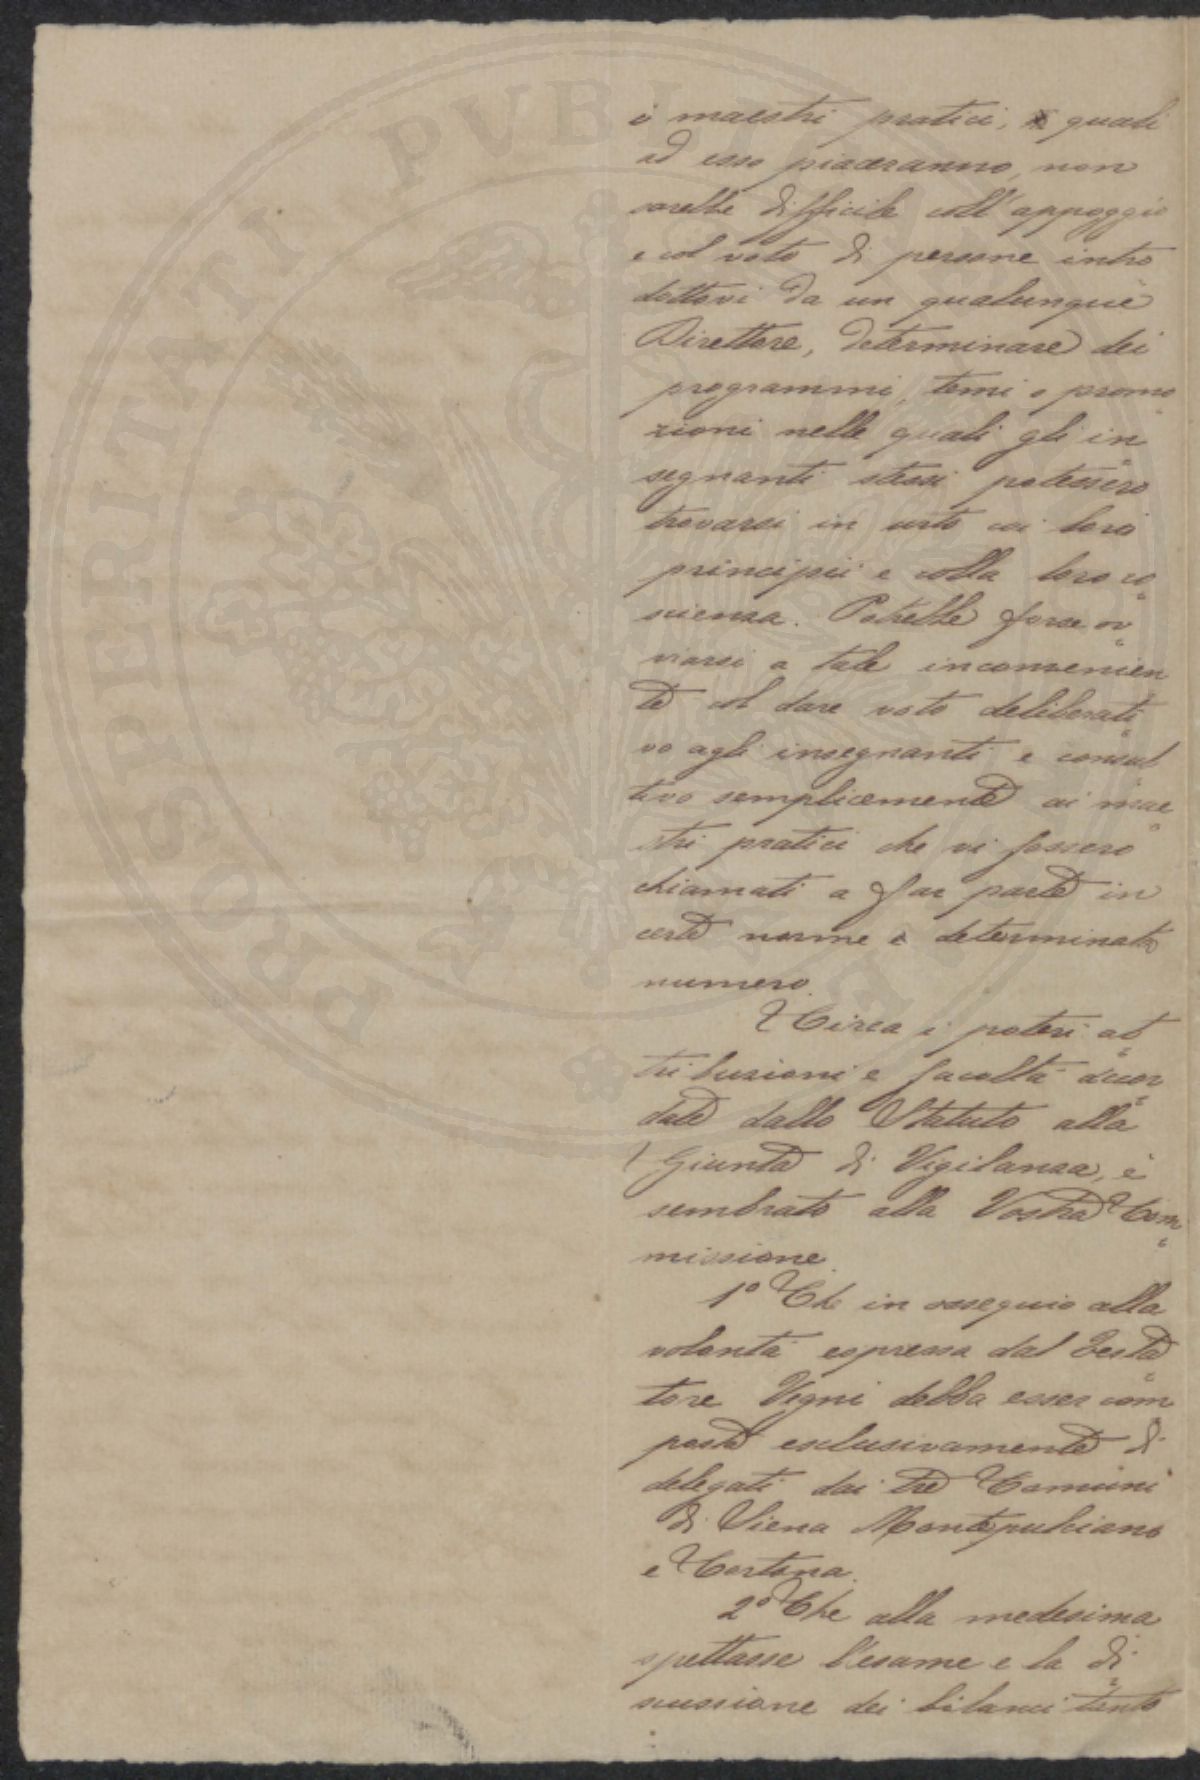 i maestri pratici, quali
ad esso piaceranno, non
sarebbe difficile coll'appoggio
e col voto di persone intro
dottovi da un qualunque
Direttore, determinare dei
programmi, temi o promo
zioni nelle quali gli in
segnanti stessi potessero
trovarsi in urto coi loro
principii e colla loro co
scienza. Potrebbe forse ov
viarsi a tale inconvenien
te col dare voto deliberati
vo agli insegnanti e consul
tivo semplicemente ai mae
stri pratici che vi fossero
chiamati a far parte in
certe norme e determinato
numero.
Circa i poteri at
tribuzioni e facoltà accor
date dallo Statuto alla
Giunta di Vigilanza, è
sembrato alla Vostra Com
missione.
1° Che in ossequio alla
volontà espressa dal Testa
tore Vegni debba esser com
posta esclusivamente di
delegati dai tre Comuni
di Siena Montepulciano
e Cortona.
2° Che alla medesima
spettasse l'esame e la di
scussione dei bilanci tanto
PROSPERITATI PVBLI